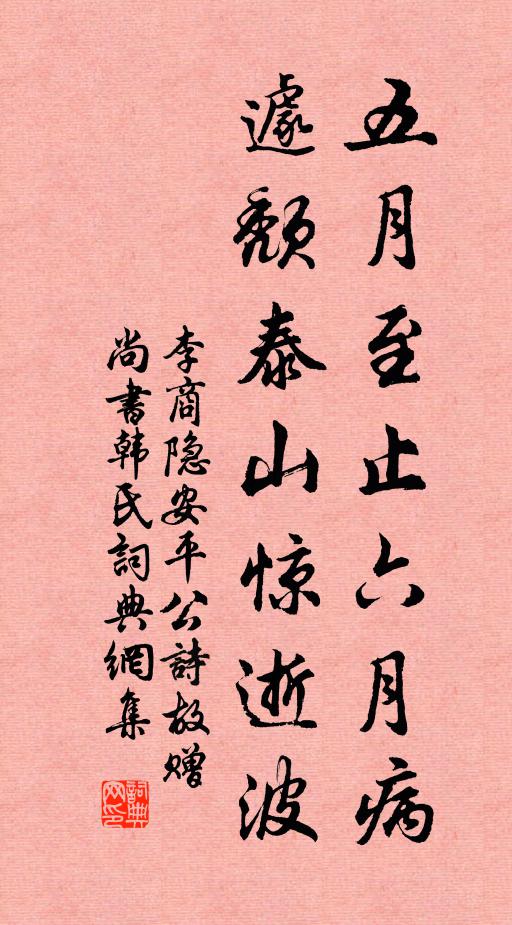 五月至止六月病
遽颓泰山惊逝波
李商隐安平公詩故赠
尚書韩氏詞典網集
詞典
网印